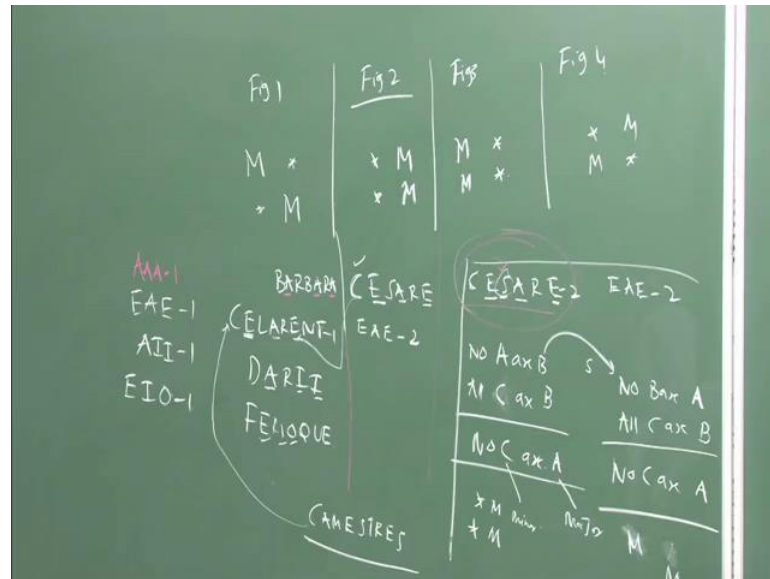 Fig 1
M *
* M
Fig 2
* M
* M
Fig3
M *
M *
Fig 4
* M
M *
AAA-1
EAE-1
AII-1
EIO-1
BARBARA
CELARENT-1
DARII
FERIOQUE
CESARE
EAE-2
CAMESTRES
CESARE-2 EAE-2
No A are B
All C are B
No C are A
* M
* M
Minor
Major
S
No B are A
All C are B
No C are A
M
M